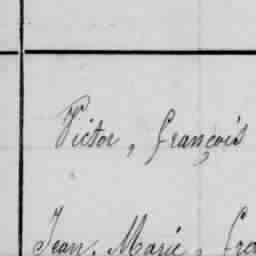 Victor, François
Jean, Marie, Fra